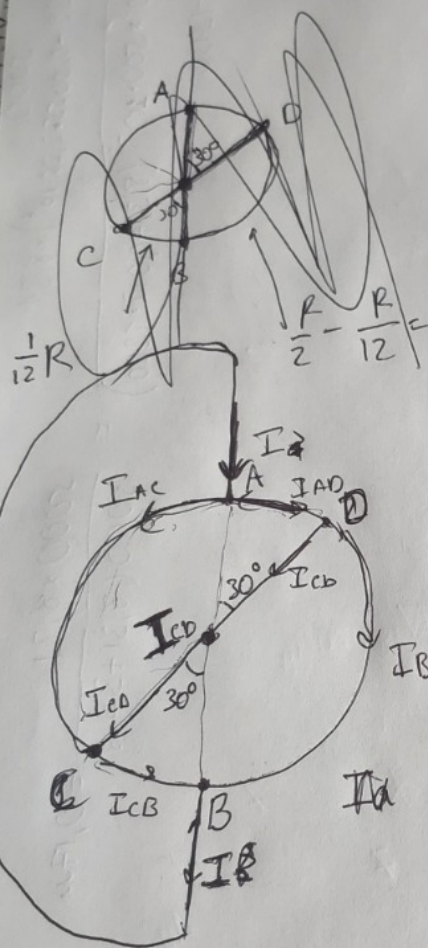 A
D
30°
30°
C
B
1/12 R
R/2 - R/12 =
I
A
I_AC
I_AD
D
30°
I_CD
I_CD
I_CD
30°
I_B
C
I_CB
B
I